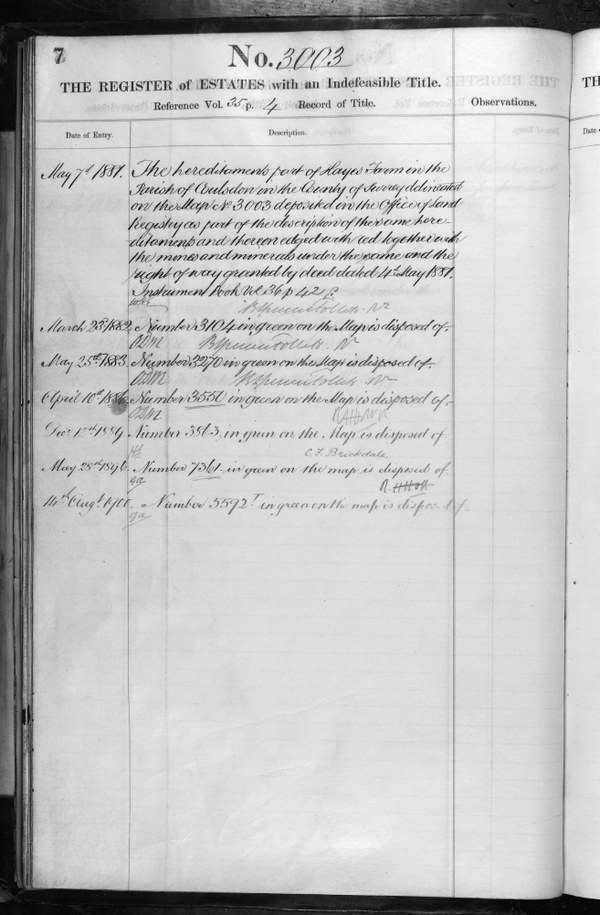 7
No. 3003
THE REGISTER of ESTATES with an Indefeasible Title.
Reference Vol. 35 p. 4 Record of Title.
Observations.
Date of Entry.
Description.
May 7th 1881. The hereditaments part of Hayes Farm in the
Parish of Coulsdon in the County of Surrey delineated
on the Map No 3003 deposited in the Office of Land
Registry as part of the description of the same here-
ditaments and thereon edged with red together with
the mines and minerals under the same and the
right of way granted by deed dated 4th May 1881.
Instrument Book Vol. 36 p 42
March 23rd 1882. Number 3104 in green on the Map is disposed of.
May 25th 1883. Number 3270 in green on the Map is disposed of.
April 10th 1886. Number 3550 in green on the Map is disposed of.
1889. Number 3863 in green on the Map is disposed of
C F Brickdale
May 28th 1896. Number 7361 in green on the map is disposed of.
14th Augt 1900. Number 5592 T in green on the map is disposed of.
ga
TH
Date